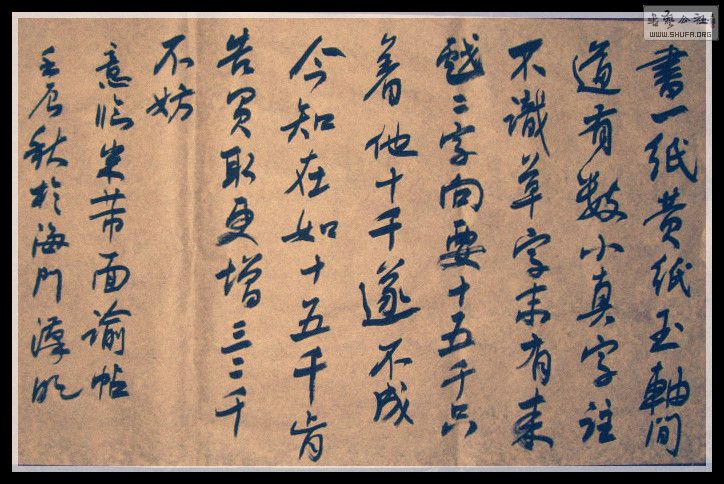 書一紙黄紙玉軸間
道有数小真字註
不識草字末有来
戯二字向要十五千只
着他十千遂不成
今知在如十五千肯
告買取更增三二千
不妨
意临米芾面諭帖
壬辰秋於海门
书艺公社
WWW.SHUFA.ORG